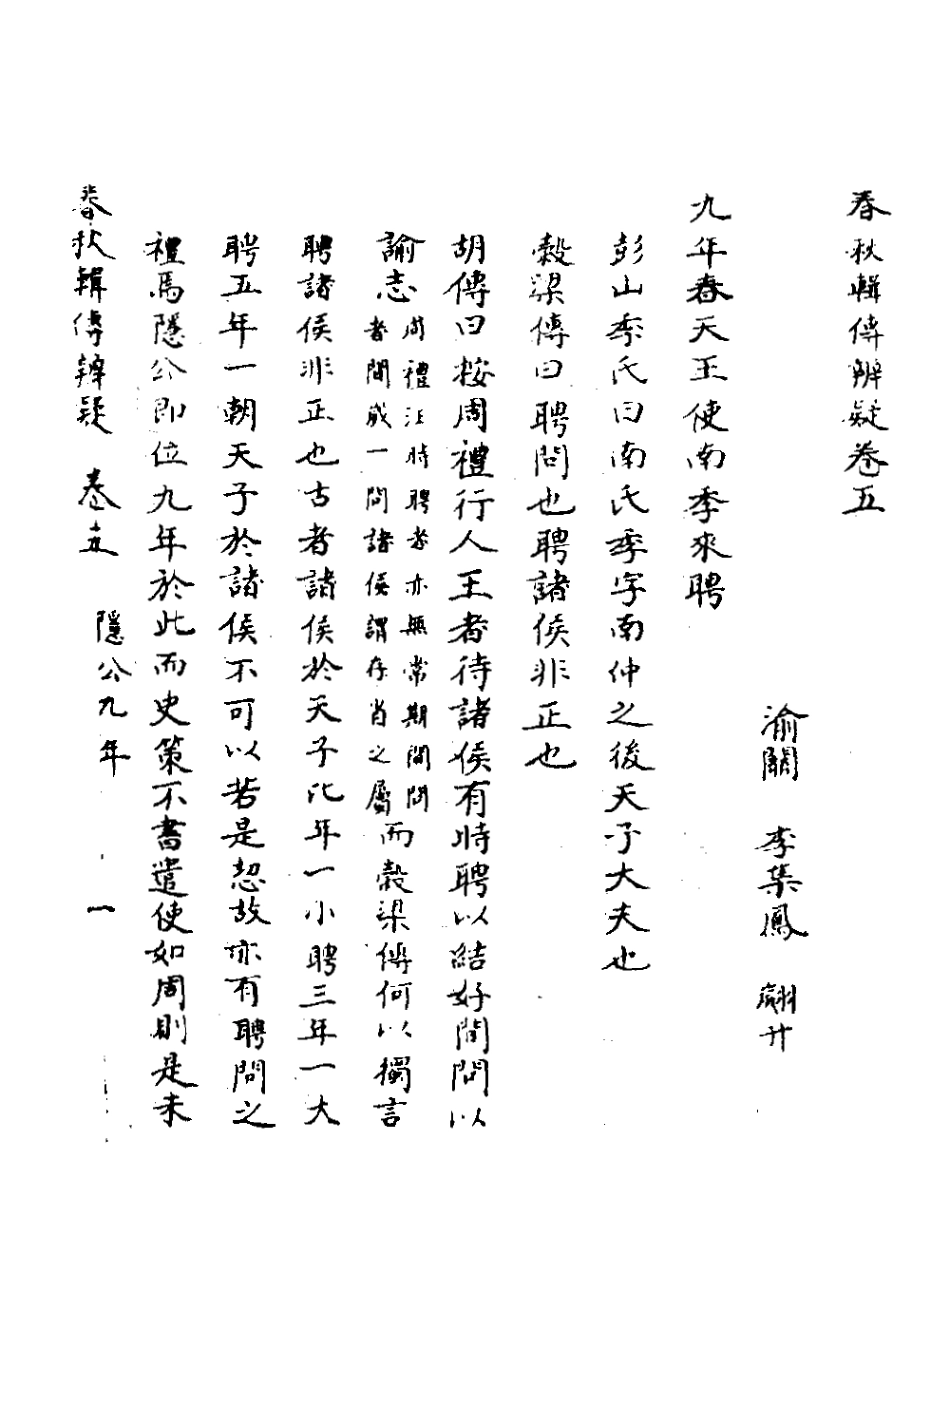 春秋輯傳辨疑卷五
渝關 李集鳳 翽升
九年春天王使南季來聘
彭山季氏曰南氏季字南仲之後天子大夫也
穀梁傳曰聘問也聘諸侯非正也
胡傳曰按周禮行人王者待諸侯有時聘以結好間問以
諭志周禮注時聘者亦無常期間問者間歲一問諸侯謂存省之屬而穀梁傳何以獨言
聘諸侯非正也古者諸侯於天子比年一小聘三年一大
聘五年一朝天子於諸侯不可以若是恝故亦有聘問之
禮焉隱公即位九年於此而史策不書遣使如周則是未
春秋輯傳辨疑 卷五 隱公九年 一